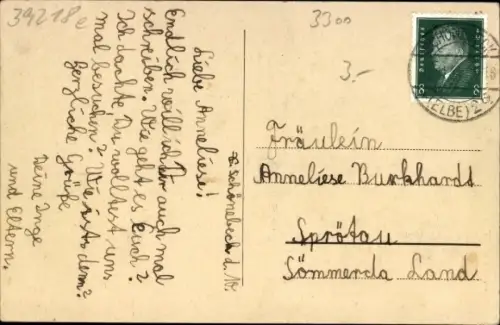 39218e
3300
3.-
DEUTSCHES REICH
8
8
(ELBE) 2 G
Schönebeck d.
Liebe Anneliese!
Endlich will ich Dir auch mal
schreiben. Wie geht es Euch?
Ich dachte Du wolltest uns
mal besuchen? Wie ists denn?
Herzliche Grüße
Deine Inge
und Eltern.
Fräulein
Anneliese Burkhardt
Sprötau
Sömmerda Land